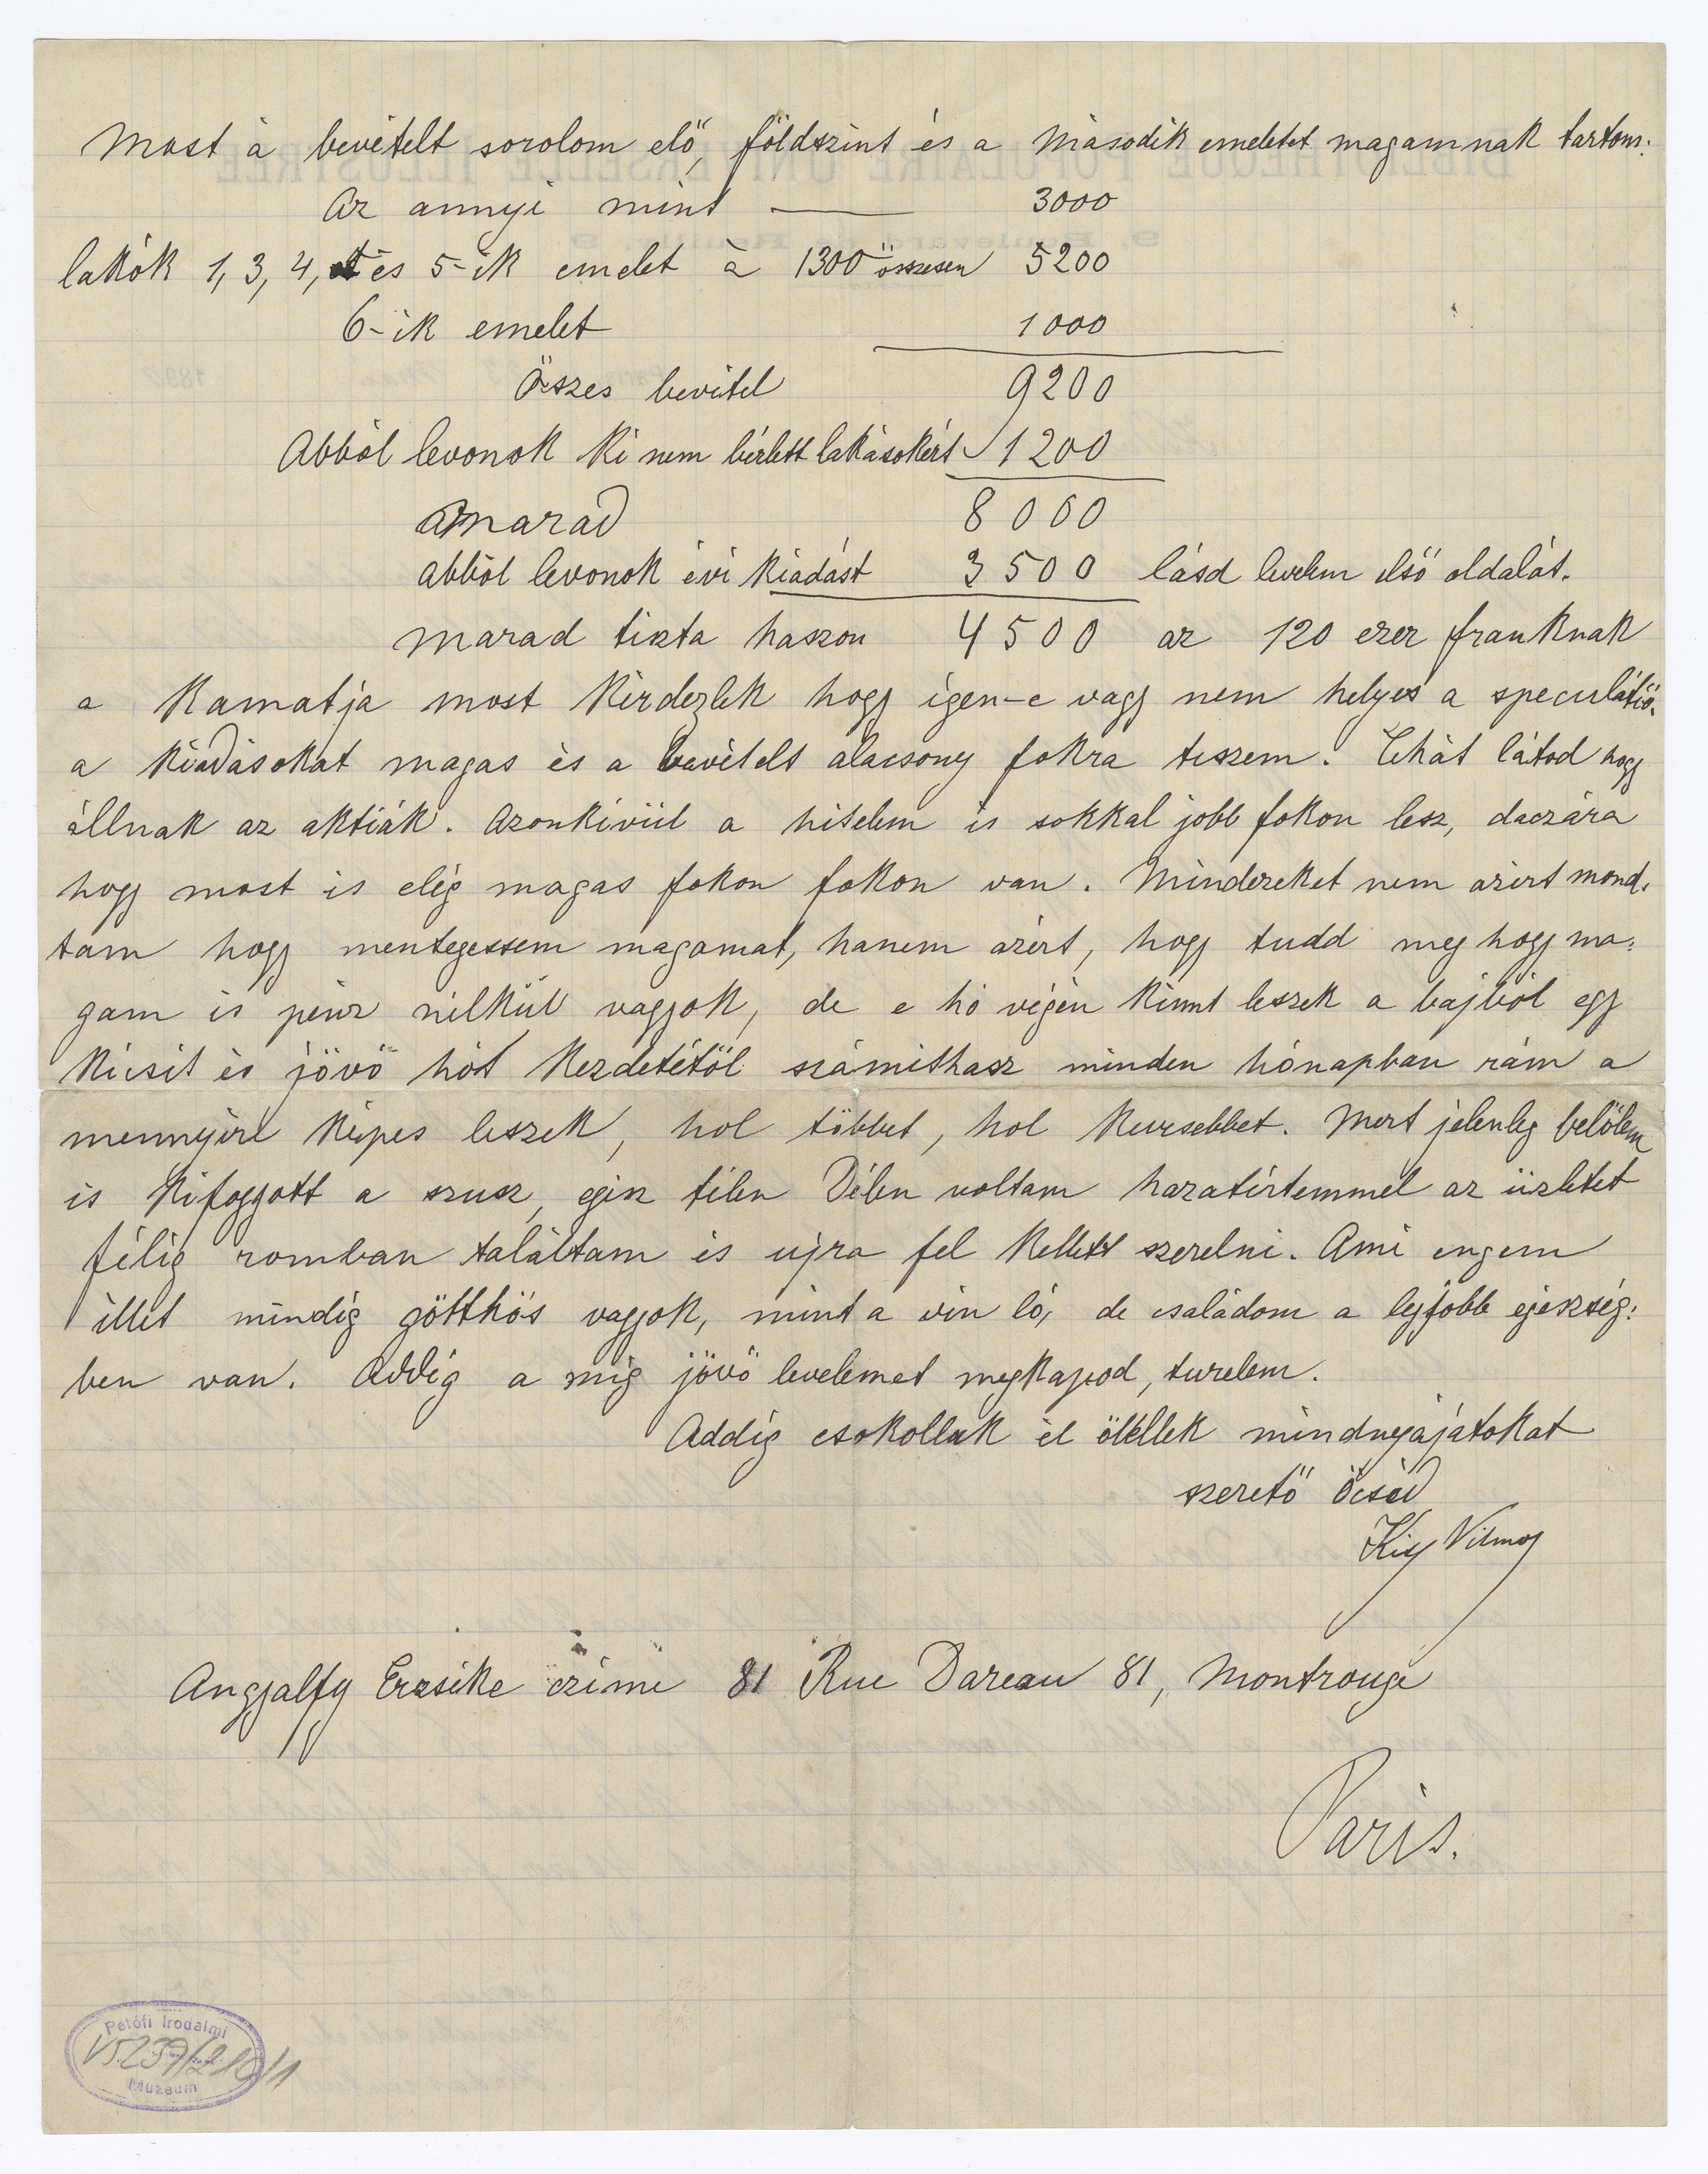 Most a bevételt sorolom elő, földszint és a második emeletet magamnak tartom.
Az annyi mint — 3000
lakók 1, 3, 4, és 5-ik emelet à 1300 összesen 5200
6-ik emelet 1000
Összes bevétel 9200
Abból levonok ki nem bérlett lakásokért 1200
marad 8000
abból levonok évi kiadást 3500 lásd levelem első oldalát.
marad tiszta haszon 4500 az 120 ezer franknak
a kamatja most kérdezlek hogy igen-e vagy nem helyes a speculátió.
a kiadásokat magas és a bevételt alacsony fokra teszem. Tehát látod hogy
állnak az aktiák. Azonkívül a hitelem is sokkal jobb fokon lesz, daczára
hogy most is elég magas fokon fokon van. Mindezeket nem azért mond-
tam hogy mentegessem magamat, hanem azért, hogy tudd meg hogy ma-
gam is pénz nélkül vagyok, de e hó végén kinnt leszek a bajból egy
kicsit és jövö hót kezdetétöl számithasz minden hónapban rám a
mennyire képes leszek, hol többet, hol kevesebbet. Mert jelenleg belölem
is kifogyott a szusz, egész télen Délen voltam hazatértemmel az üzletet
félig romban találtam és ujra fel kellett szerelni. Ami engem
illet mindig götthös vagyok, mint a vén ló, de családom a legjobb egészség-
ben van. Addig a mig jövö levelemet megkapod, türelem.
Addig csokollak és ölellek mindnyájátokat
szeretö öcséd
Kiss Vilmos
Angyalfy Erzsike czime 81 Rue Dareau 81, Montrouge
Paris.
Petőfi Irodalmi
V5239/210/1
Múzeum